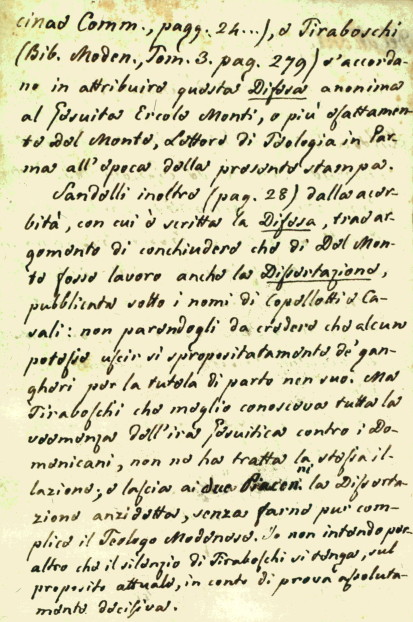 cinas Comm., pagg. 24...), e Tiraboschi
(Bib. Moden., Tom. 3. pag. 279) s'accorda-
no in attribuire questa Difesa anonima
al Gesuita Ercole Monti, o più esattamen-
te Dal Monte, Lettore di Teologia in Par-
ma all'epoca della presente stampa.
Sandelli inoltre (pag. 28) dalla acer-
bità, con cui è scritta la Difesa, trae ar-
gomento di conchiudere che di Dal Mon-
te fosse lavoro anche la Dissertazione,
pubblicata sotto i nomi di Copellotti e Ca-
sali: non parendogli da credere che alcun
potesse uscir sì spropositatamente de' gan-
gheri per la tutela di parto non suo. Ma
Tiraboschi che meglio conosceva tutta la
veemenza dell'ira Gesuitica contro i Do-
menicani, non ne ha tratta la stessa il-
lazione; e lascia ai due Piacen.ni la Disserta-
zione anzidetta, senza farne pur com-
plice il Teologo Modenese. Io non intendo per
altro che il silenzio di Tiraboschi si tenga, sul
proposito attuale, in conto di prova assoluta-
mente decisiva.